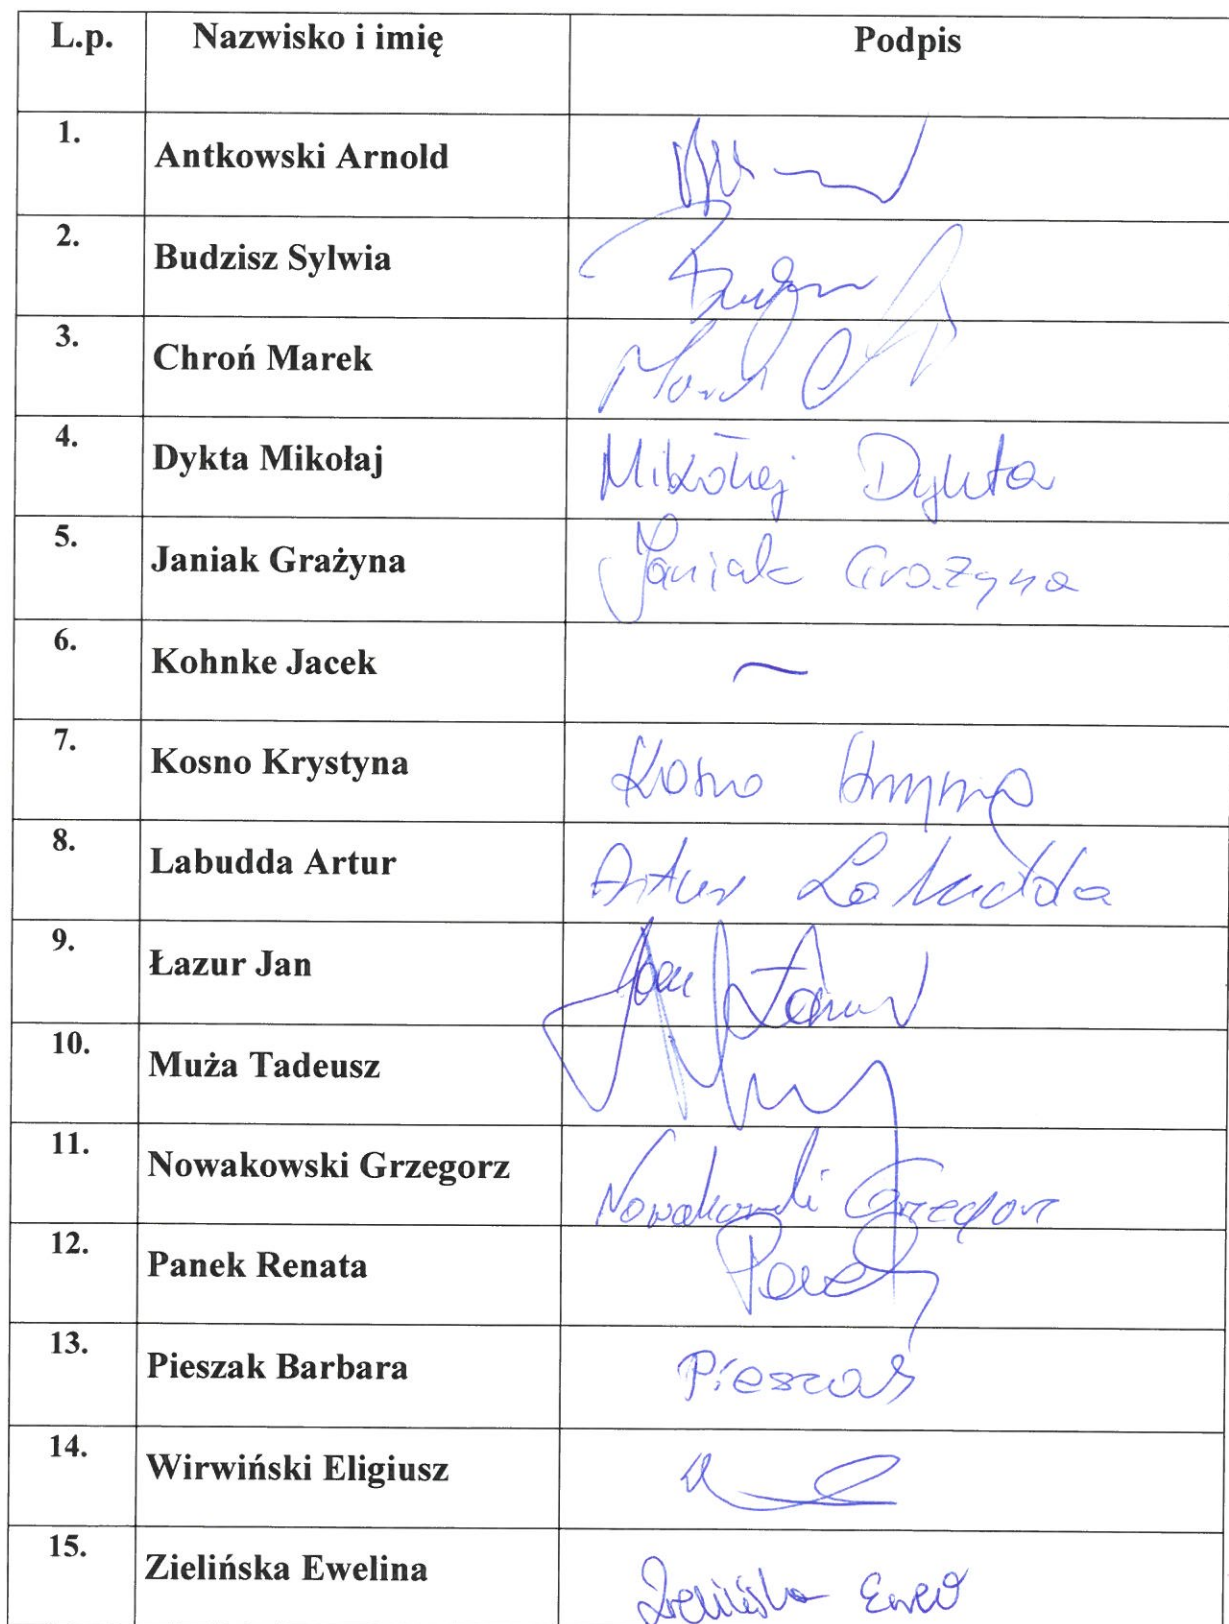 L.p. Nazwisko i imię Podpis
1. Antkowski Arnold
2. Budzisz Sylwia
3. Chroń Marek Marek
4. Dykta Mikołaj Mikołaj Dykta
5. Janiak Grażyna Janiak Grażyna
6. Kohnke Jacek
7. Kosno Krystyna Kosno
8. Labudda Artur Artur Labudda
9. Łazur Jan Jan Łazur
10. Muża Tadeusz
11. Nowakowski Grzegorz Nowakowski Grzegorz
12. Panek Renata Panek
13. Pieszak Barbara Pieszak
14. Wirwiński Eligiusz
15. Zielińska Ewelina Zielińska Ewel